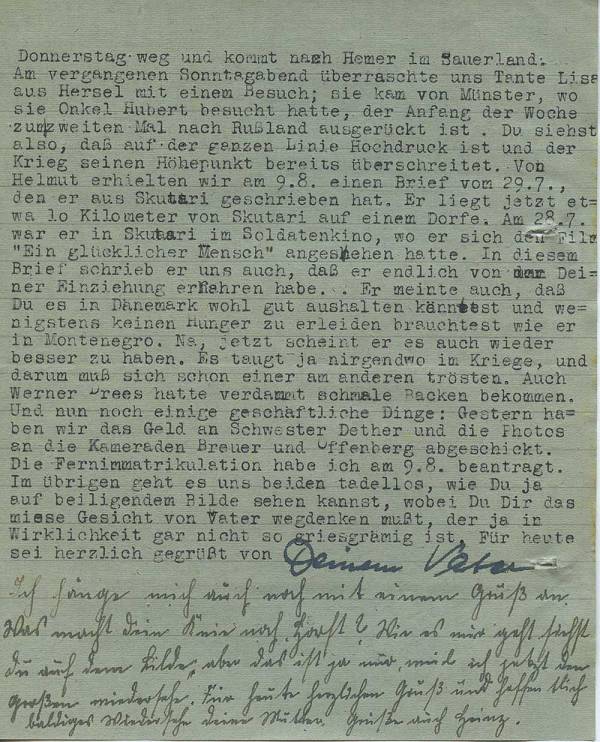 Donnerstag weg und kommt nach Hemer im Sauerland.
Am vergangenen Sonntagabend überraschte uns Tante Lisa
aus Hersel mit einem Besuch; sie kam von Münster, wo
sie Onkel Hubert besucht hatte, der Anfang der Woche
zum zweiten Mal nach Rußland ausgerückt ist . Du siehst
also, daß auf der ganzen Linie Hochdruck ist und der
Krieg seinen Höhepunkt bereits überschreitet. Von
Helmut erhielten wir am 9.8. einen Brief vom 29.7.,
den er aus Skutari geschrieben hat. Er liegt jetzt et=
wa 10 Kilometer von Skutari auf einem Dorfe. Am 28.7.
war er in Skutari im Soldatenkino, wo er sich den Film
"Ein glücklicher Mensch" angesehen hatte. In diesem
Brief schrieb er uns auch, daß er endlich von Dei=
ner Einziehung erfahren habe.. Er meinte auch, daß
Du es in Dänemark wohl gut aushalten könntest und we=
nigstens keinen Hunger zu erleiden brauchtest wie er
in Montenegro. Na, jetzt scheint er es auch wieder
besser zu haben. Es taugt ja nirgendwo im Kriege, und
darum muß sich schon einer am anderen trösten. Auch
Werner Drees hatte verdammt schmale Backen bekommen.
Und nun noch einige geschäftliche Dinge: Gestern ha=
ben wir das Geld an Schwester Dether und die Photos
an die Kameraden Breuer und Offenberg abgeschickt.
Die Fernimmatrikulation habe ich am 9.8. beantragt.
Im übrigen geht es uns beiden tadellos, wie Du ja
auf beiligendem Bilde sehen kannst, wobei Du Dir das
miese Gesicht von Vater wegdenken mußt, der ja in
Wirklichkeit gar nicht so griesgrämig ist. Für heute
sei herzlich gegrüßt von Deinem Vater
Ich hänge mich auch noch mit einem Gruß an.
Was macht dein Knie noch, Horst? Wie es mir geht siehst
du auf dem Bilde, aber das ist ja nur, weil ich jetzt den
großen wiedersehe. Für heute herzlichen Gruß und hoffentlich
baldiges Wiedersehn deine Mutter. Grüße auch Heinz.